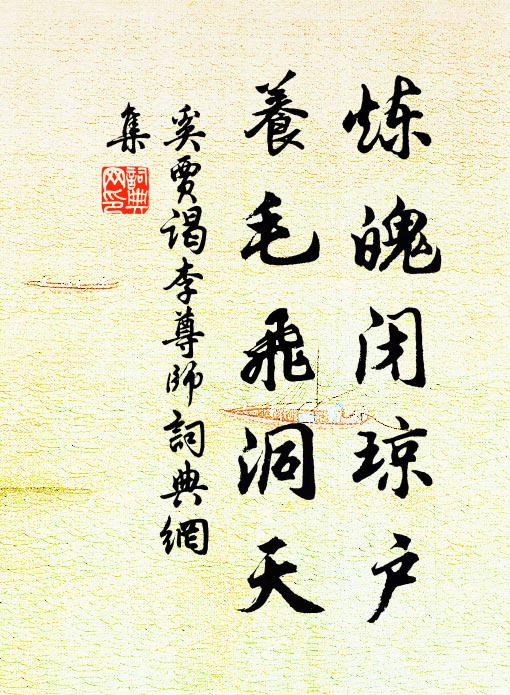 炼魄闭琼户
養毛飛洞天
奚賈谒李尊師詞典網
集
詞典网印